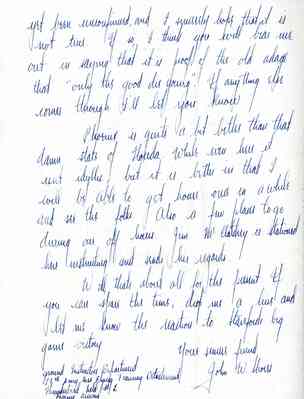 yet been unconfirmed, and I sincerely hope that it is
not true. If so, I think you will bear me
out in saying that it is proof of the old adage
that "only the good die young". If anything else
comes through I'll let you know.
Phoenix is quite a bit better than that
damn state of Florida. While now here it
isn't idyllic but it is better in that I
will be able to get home once in a while
and see the folks. Also a few places to go
during our off hours. Jim McClatchy is stationed
here instructing and sends his regards.
Well that's about all for the present. If
you can spare the time, drop me a line and
let me know the reaction to Stanfords big
game victory
Your sincere friend
John W.
Ground Instructors Department
Training Detachment